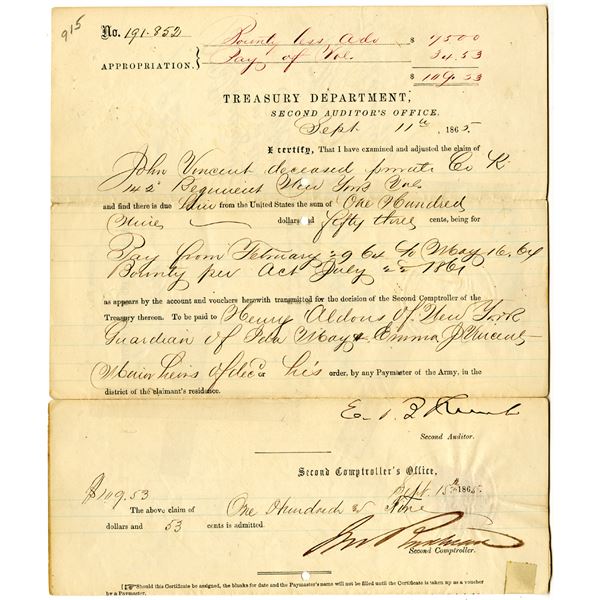 915
No. 191.852
Bounty less Adv $ 7500
APPROPRIATION. Pay of Vol. 34.53
$ 109.53
TREASURY DEPARTMENT,
SECOND AUDITOR'S OFFICE.
Sept 11th, 1865.
I certify, That I have examined and adjusted the claim of
John Vincent deceased private Co K
142d Regiment New York Vols
and find there is due him from the United States the sum of One Hundred
Nine dollars and fifty three cents, being for
Pay from February 29 64 to May 16. 64
Bounty per Act July 22 1861
as appears by the account and vouchers herewith transmitted for the decision of the Second Comptroller of the
Treasury thereon. To be paid to Henry Aldous of New York
Guardian of Ida May & Emma J Vincent
Minor heirs of dec'd or his order, by any Paymaster of the Army, in the
district of the claimant's residence.
Second Auditor.
Second Comptroller's Office,
$109.53 Sept. 15th 1865.
The above claim of One Hundred & Nine
dollars and 53 cents is admitted.
Second Comptroller.
Should this Certificate be assigned, the blanks for date and the Paymaster's name will not be filled until the Certificate is taken up as a voucher
by a Paymaster.